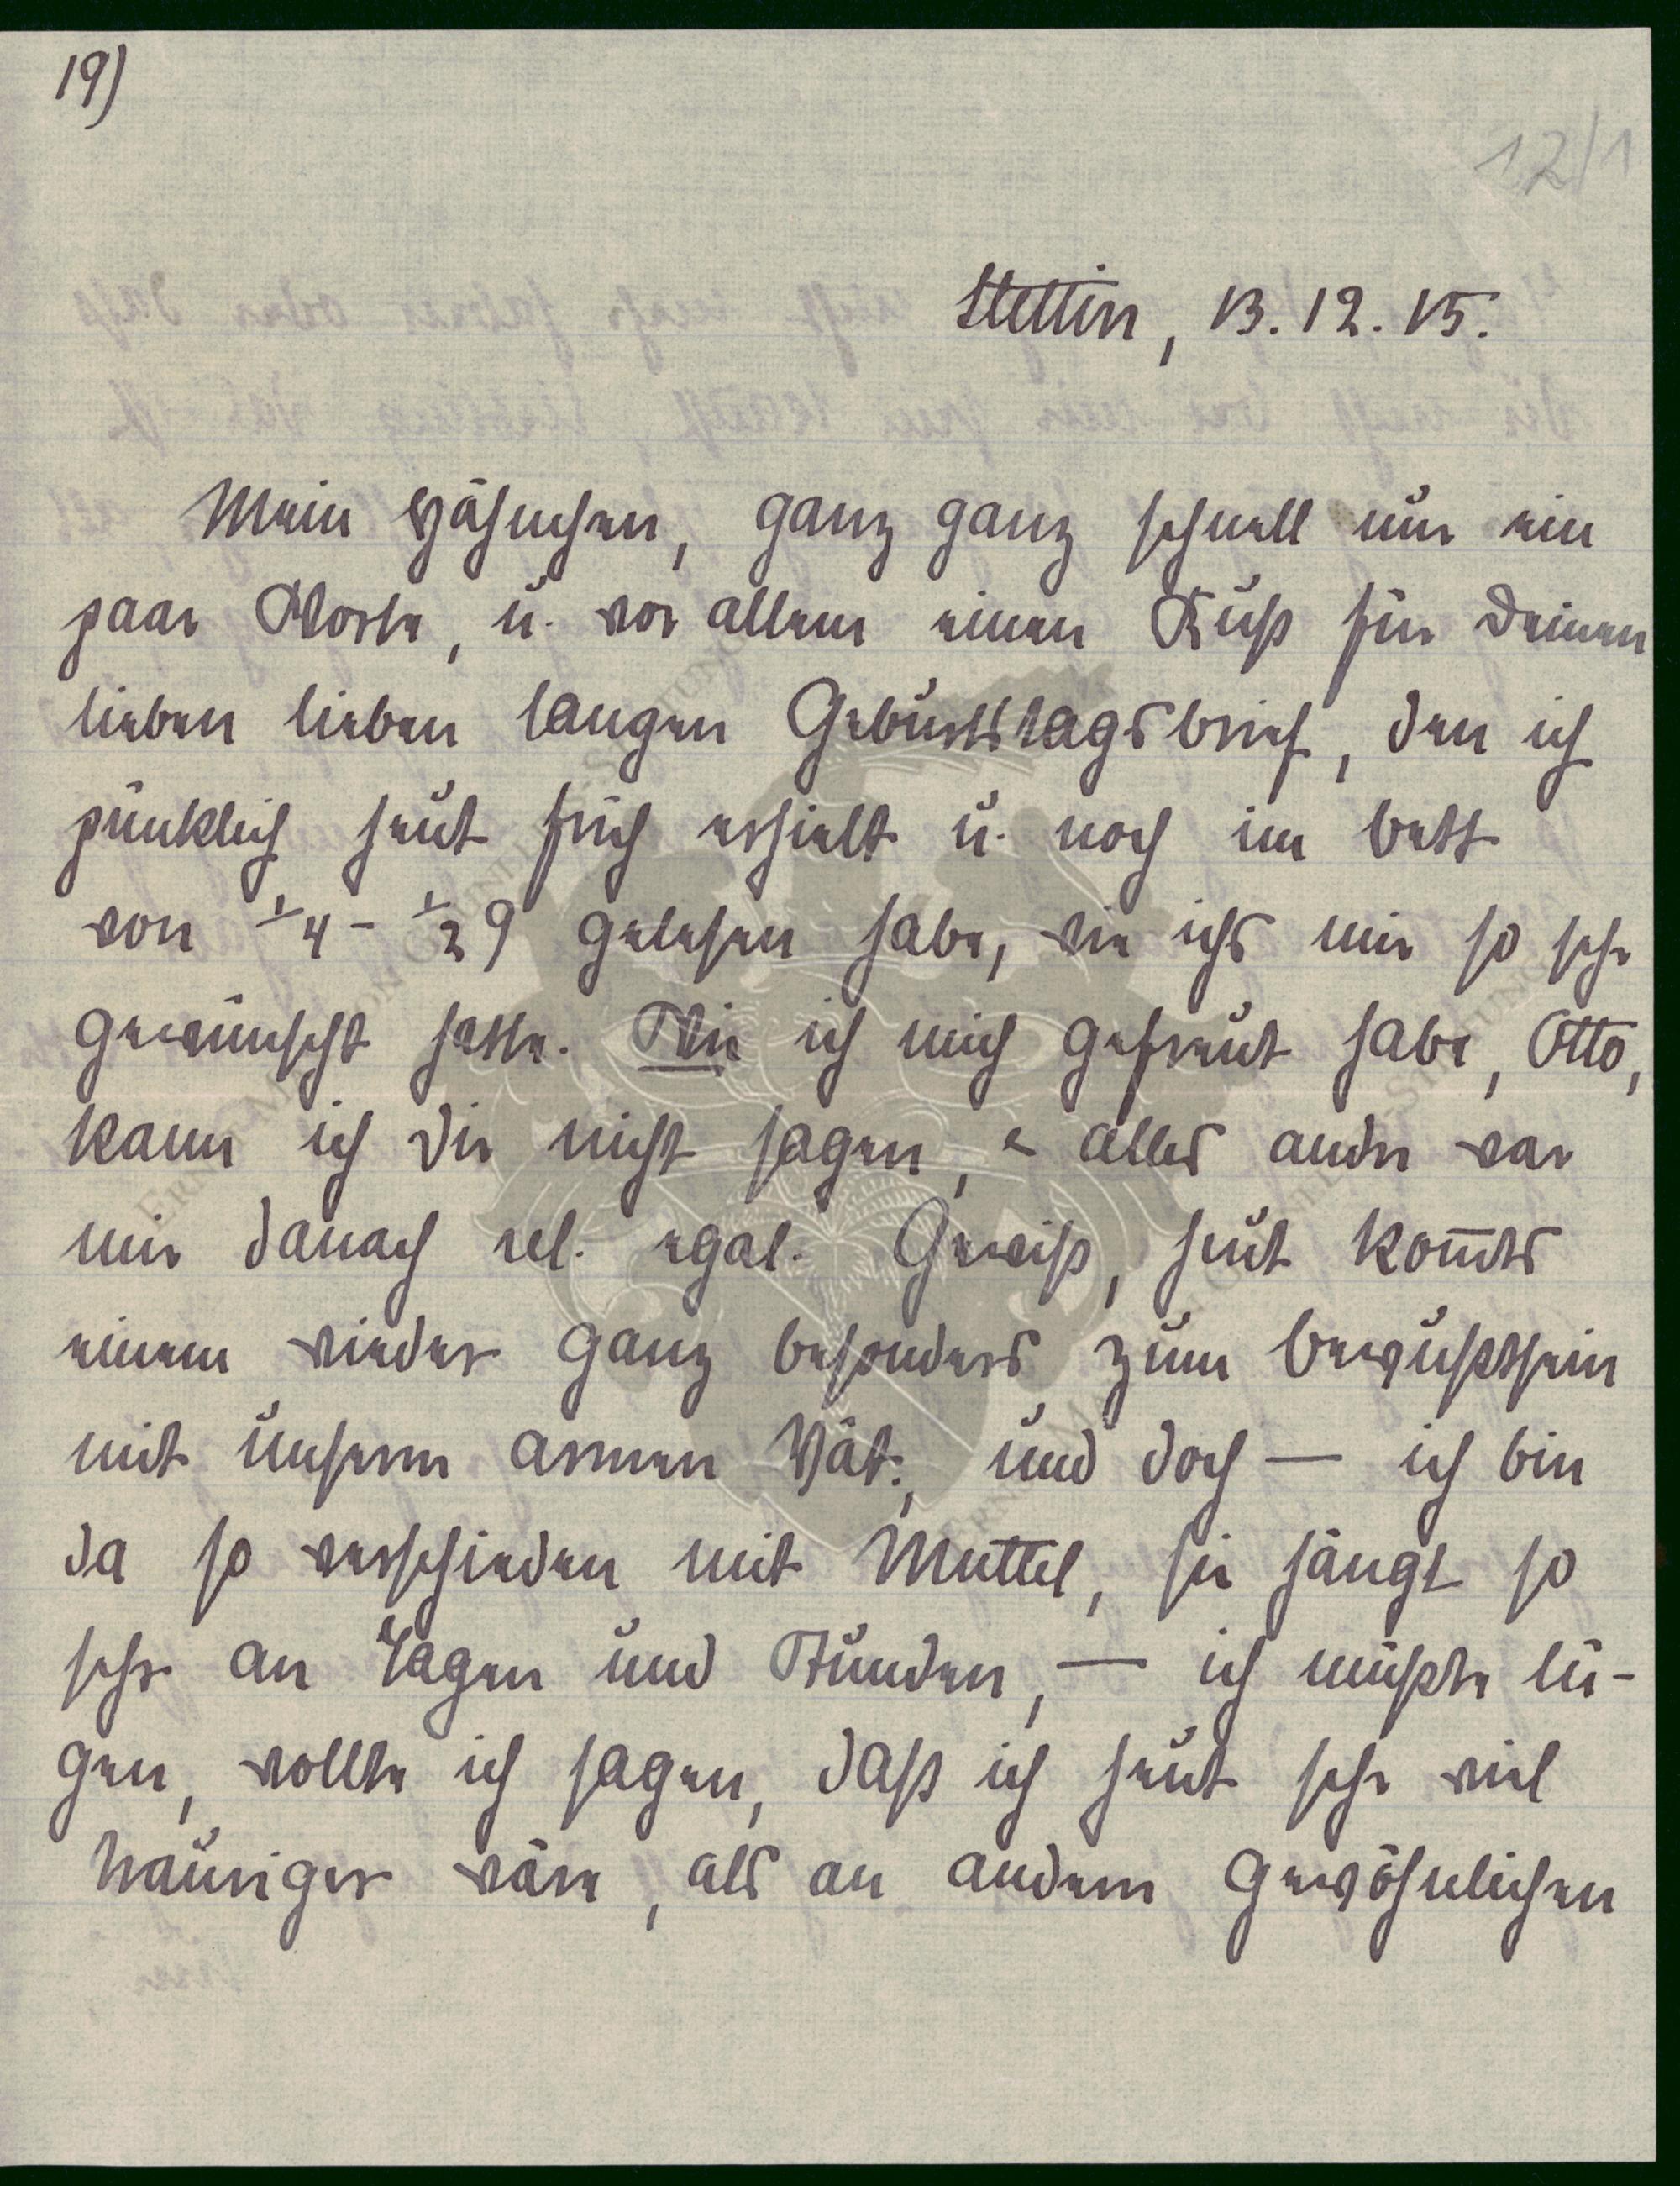 19)
12/1
Stettin, 13.12.15.
Mein Häschen, ganz ganz schnell nur ein
paar Worte, u. vor allem einen Kuß für Deinen
lieben lieben langen Geburtstagsbrief, den ich
pünktlich heut früh erhielt u. noch im Bett
von 1/4 - 1/2 9 gelesen habe, wie ichs mir so sehr
gewünscht hatte. Wie ich mich gefreut habe, Otto,
kann ich Dir nicht sagen, & alles andre war
mir danach rel. egal. Gewiss, heut kom̅ts
einem wieder ganz besonders zum Bewußtsein
mit unserm armen Vät:, und doch — ich bin
da so verschieden mit Muttel, sie hängt so
sehr an Tagen und Stunden, — ich müßte lü-
gen, wollte ich sagen, daß ich heut sehr viel
trauriger wäre, als an andern gewöhnlichen